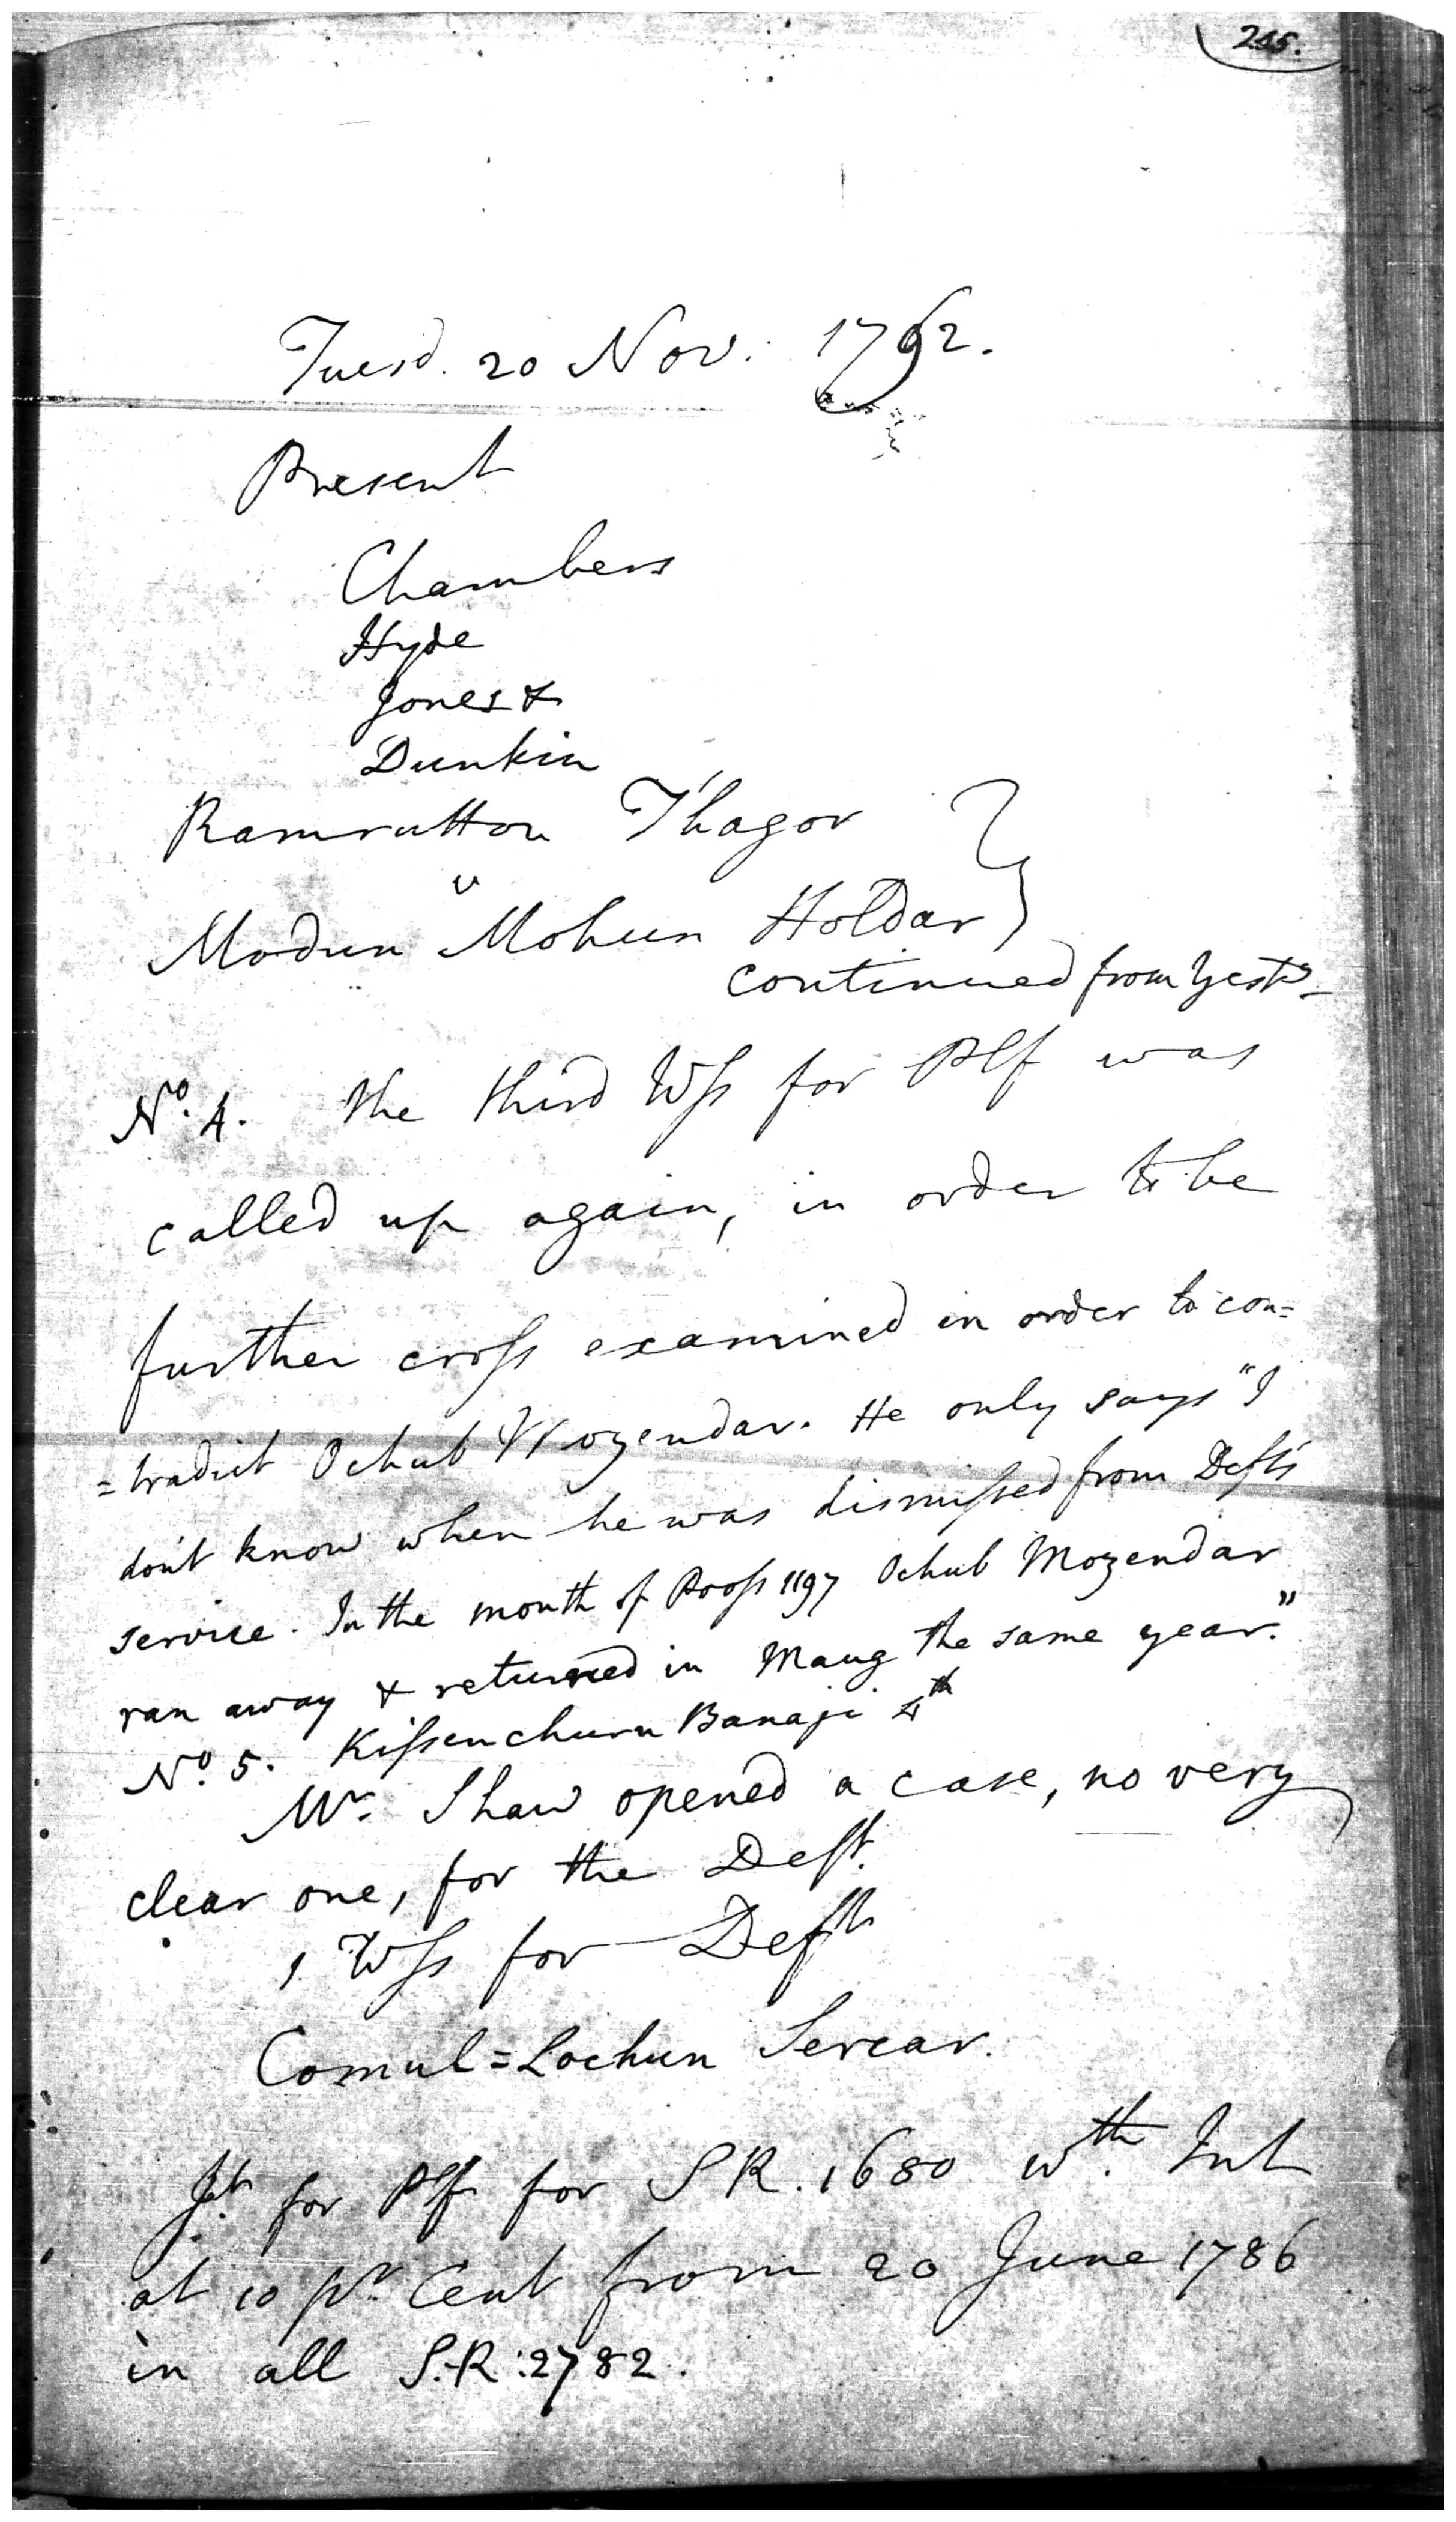 245.
Tuesd. 20 Nov: 1792.
Present
Chambers
Hyde
Jones &
Dunkin
Ramrutton Thagor
v
Modun Mohun Holdar
continued from Yesty
No. 4. The third Wss for Plf was
called up again, in order to be
further cross examined in order to con=
=tradict Ochub Mozendar. He only says "I
don't know when he was dismissed from Defts
service. In the month of Pooss 1197 Ochub Mozendar
ran away & returned in Maug the same year."
No. 5. Kissenchurn Banaji 4th
Mr. Shaw opened a case, no very
clear one, for the Deft.
1. Wss for Deft
Comul=Lochun Sercar.
Jt. for Plf for S R. 1680 wth. Int
at 10 pr. Cent from 20 June 1786
in all S.R: 2782.